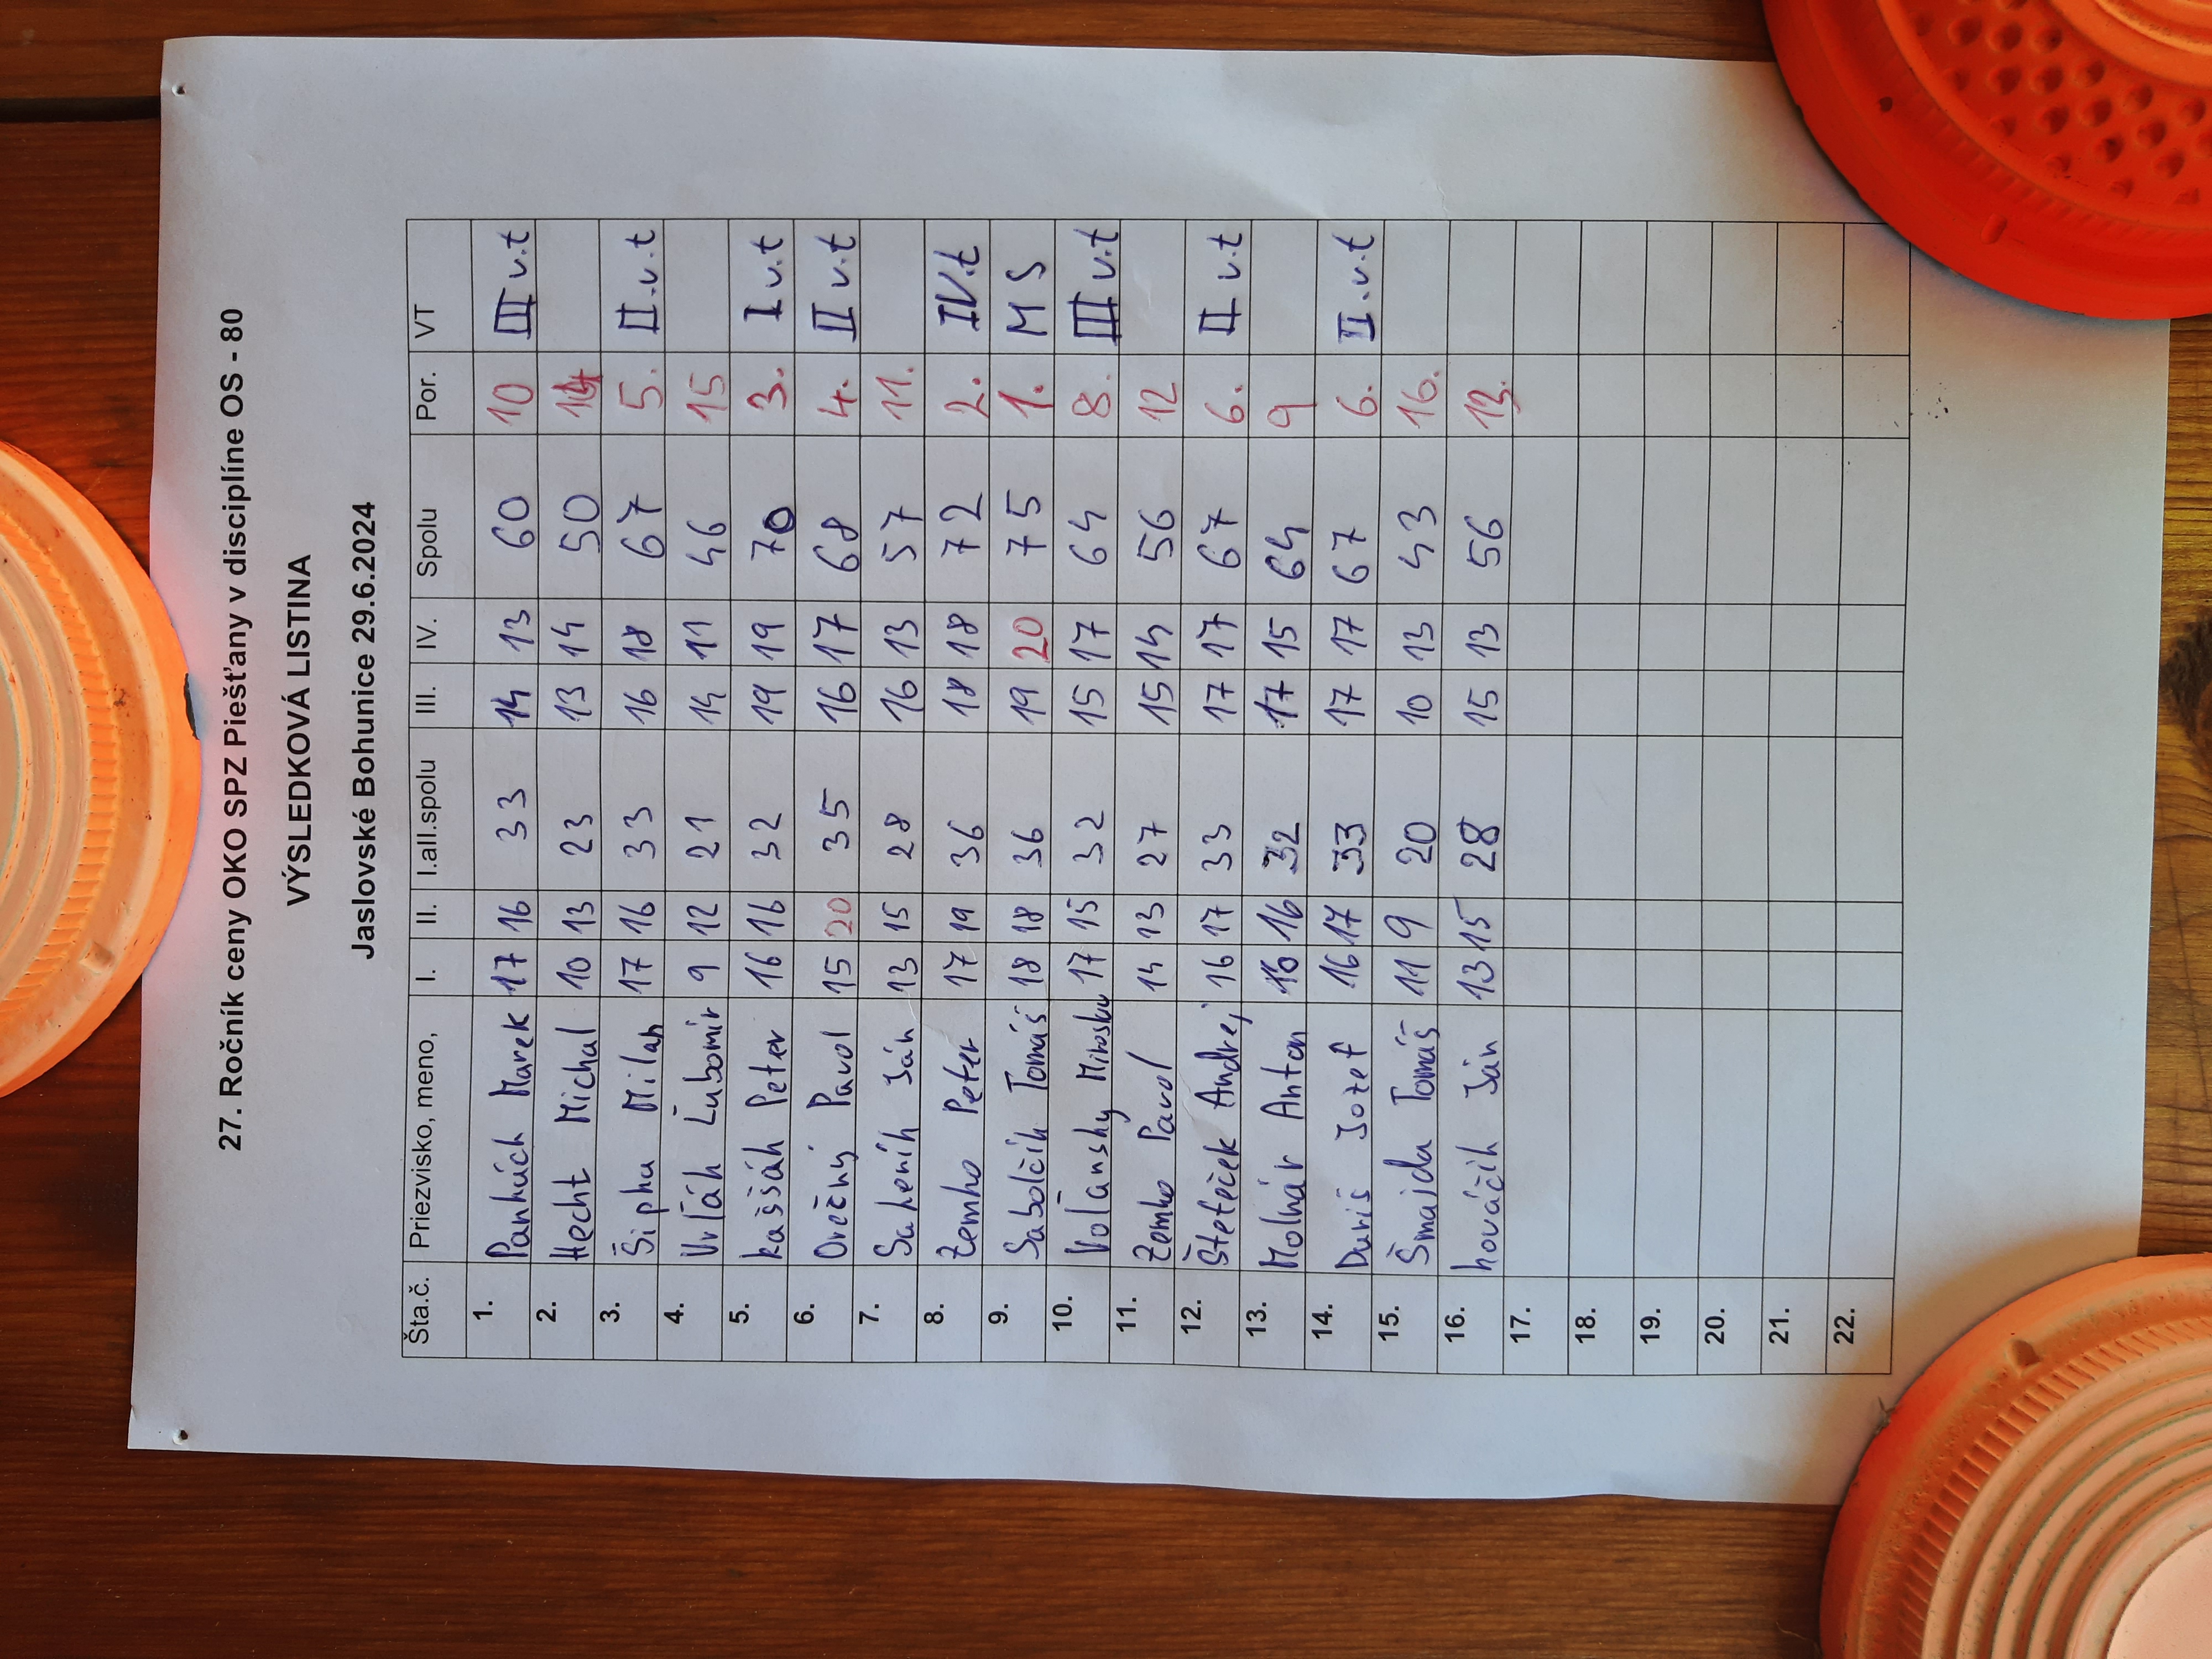 27. Ročník ceny OKO SPZ Piešťany v disciplíne OS - 80
VÝSLEDKOVÁ LISTINA
Jaslovské Bohunice 29.6.2024
Šta.č. Priezvisko, meno, I. II. I.all.spolu III. IV. Spolu Por. VT
1. Pankúch Marek 17 16 33 14 13 60 10 III v.t
2. Hecht Michal 10 13 23 13 14 50 14 
3. Šipka Milan 17 16 33 16 18 67 5. II.v.t
4. Vrľák Ľubomír 9 12 21 14 11 46 15
5. Kaššák Peter 16 16 32 19 19 70 3. I v.t
6. Orečný Pavol 15 20 35 16 17 68 4. II v.t
7. Sakeník Ján 13 15 28 16 13 57 11.
8. Zemko Peter 17 19 36 18 18 72 2. IV.t
9. Sabolčík Tomáš 18 18 36 19 20 75 1. MS
10. Voľanský Miroslav 17 15 32 15 17 64 8. III v.t
11. Zemko Pavol 14 13 27 15 14 56 12
12. Šteteček Andrej 16 17 33 17 17 67 6. II v.t
13. Molnár Anton 16 16 32 17 15 64 9
14. Duriš Jozef 16 17 33 17 17 67 6. II.v.t
15. Šmajda Tomáš 11 9 20 10 13 43 16.
16. Kováčik Ján 13 15 28 15 13 56 13.
17.
18.
19.
20.
21.
22.